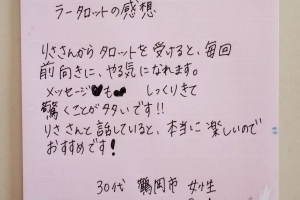 ラータロットの感想
りささんからタロットを受けると、毎回
前向きに、やる気になれます。
メッセージ♥も♥ しっくりきて
驚くことが多いです!!
りささんと話していると、本当に楽しいので
おすすめです!
30代 鶴岡市 女性